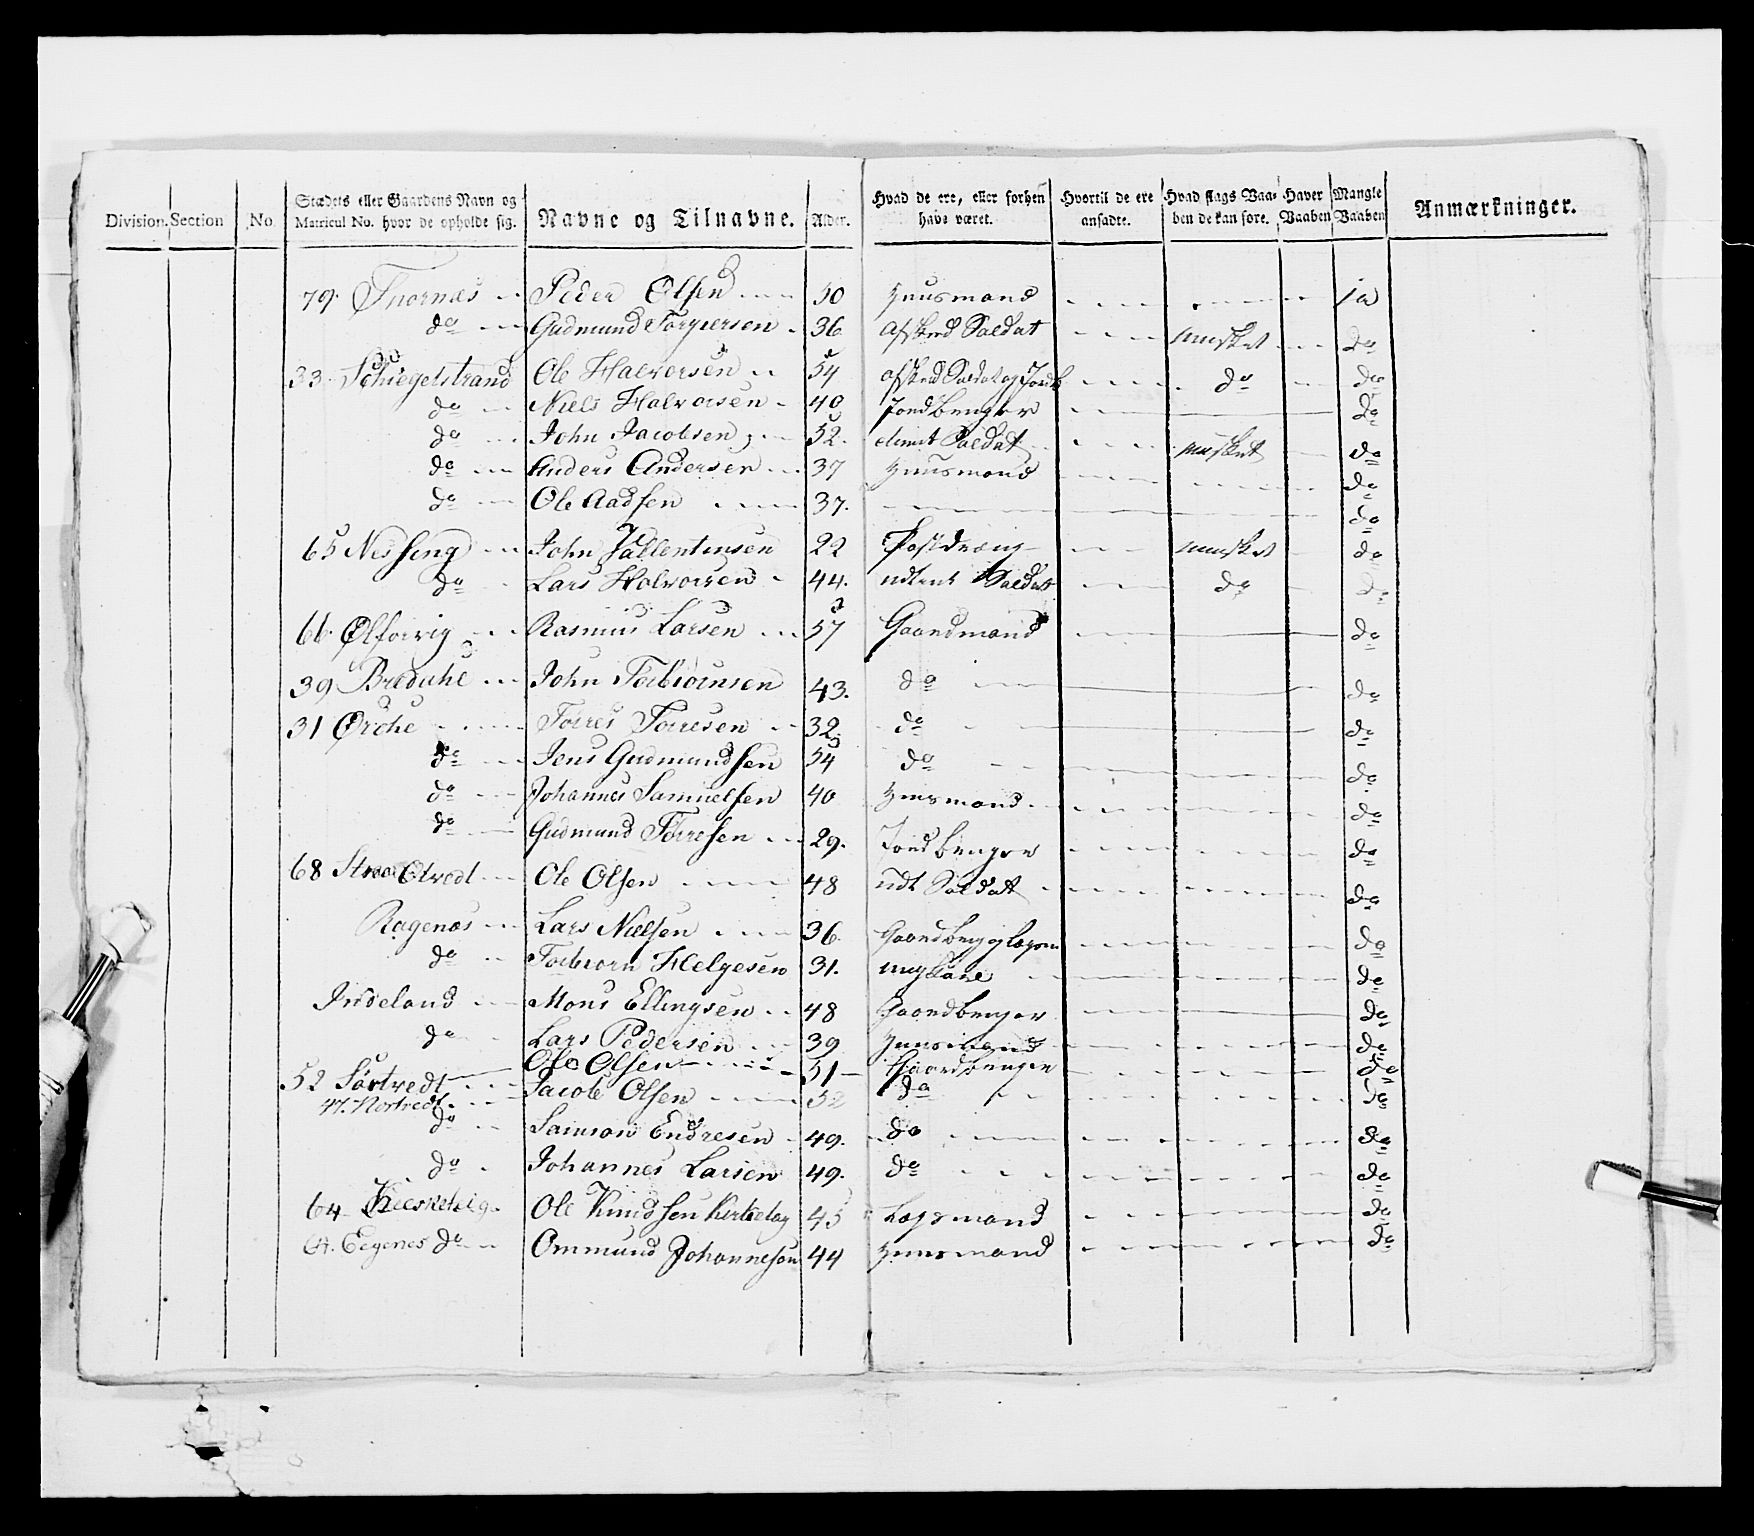 Division. Section No. Stædets eller Gaardens Navn og Matricul No. hvor de opholde sig. Navne og Tilnavne. Alder. Hvad de ere, eller forhen have været. Hvortil de ere ansadte. Hvad slags Vaaben de kan føre. Haver Vaaben Mangle Vaaben Anmærkninger.
79. Thornæs Peder Olsen 50 Huusmand Ja
do Gudmund Torgiersen 36 Afsked Soldat Musket do
33. Schiegelstrand Ole Halvorsen 54 afsked Soldat og do do
do Niels Halvorsen 40 Jordbruger do
do John Jacobsen 52. dimit Soldat Musket do
do Anders Andersen 37 Huusmand do
do Ole Aadsen 37. do
65 Nesseng John Vallentinsen 22 Postdreng Musket do
do Lars Halvorsen 44. udtient Soldat do do
66. Ølfarvig Rasmus Larsen 57 Gaardmand do
39 Breduhe John Torbiørnsen 43. do do
31 Ørche Tørres Tørresen 32. do do
do Jens Gudmundsen 54 do do
do Johannes Samuelsen 40 Huusmand do
do Gudmund Tørresen 29. Jordbruger do
68 Ole Olsen 48 udt Soldat do
Ragenæs Lars Nielsen 36. do
do Torbiørn Helgesen 31. do
Indeland Mons Ellingsen 48 Gaardbruger do
do Lars Pedersen 39 Huusmand do
52 Sørtvedt Ole Olsen 51 Gaardbruger do
47. Nortvedt Jacob Olsen 52 do do
do Samson Endresen 49. do do
do Johannes Larsen 49. do do
64 Ole Knudsen 45 do
Eegenes do Ommund Johannesen 44 Huusmand do